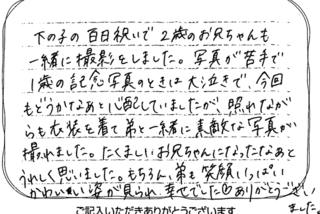 下の子の百日祝いで2歳のお兄ちゃんも
一緒に撮影をしました。写真が苦手で
1歳の記念写真のときは大泣きで、今回
もどうかなあと心配していましたが、照れなが
らも衣装を着て弟と一緒に素敵な写真が
撮れました。たくましいお兄ちゃんになったなあと
うれしく思いました。もちろん、弟も笑顔いっぱい
かわいい姿が見られ幸せでした♡ありがとうござい
ました。
ご記入いただきありがとうございます